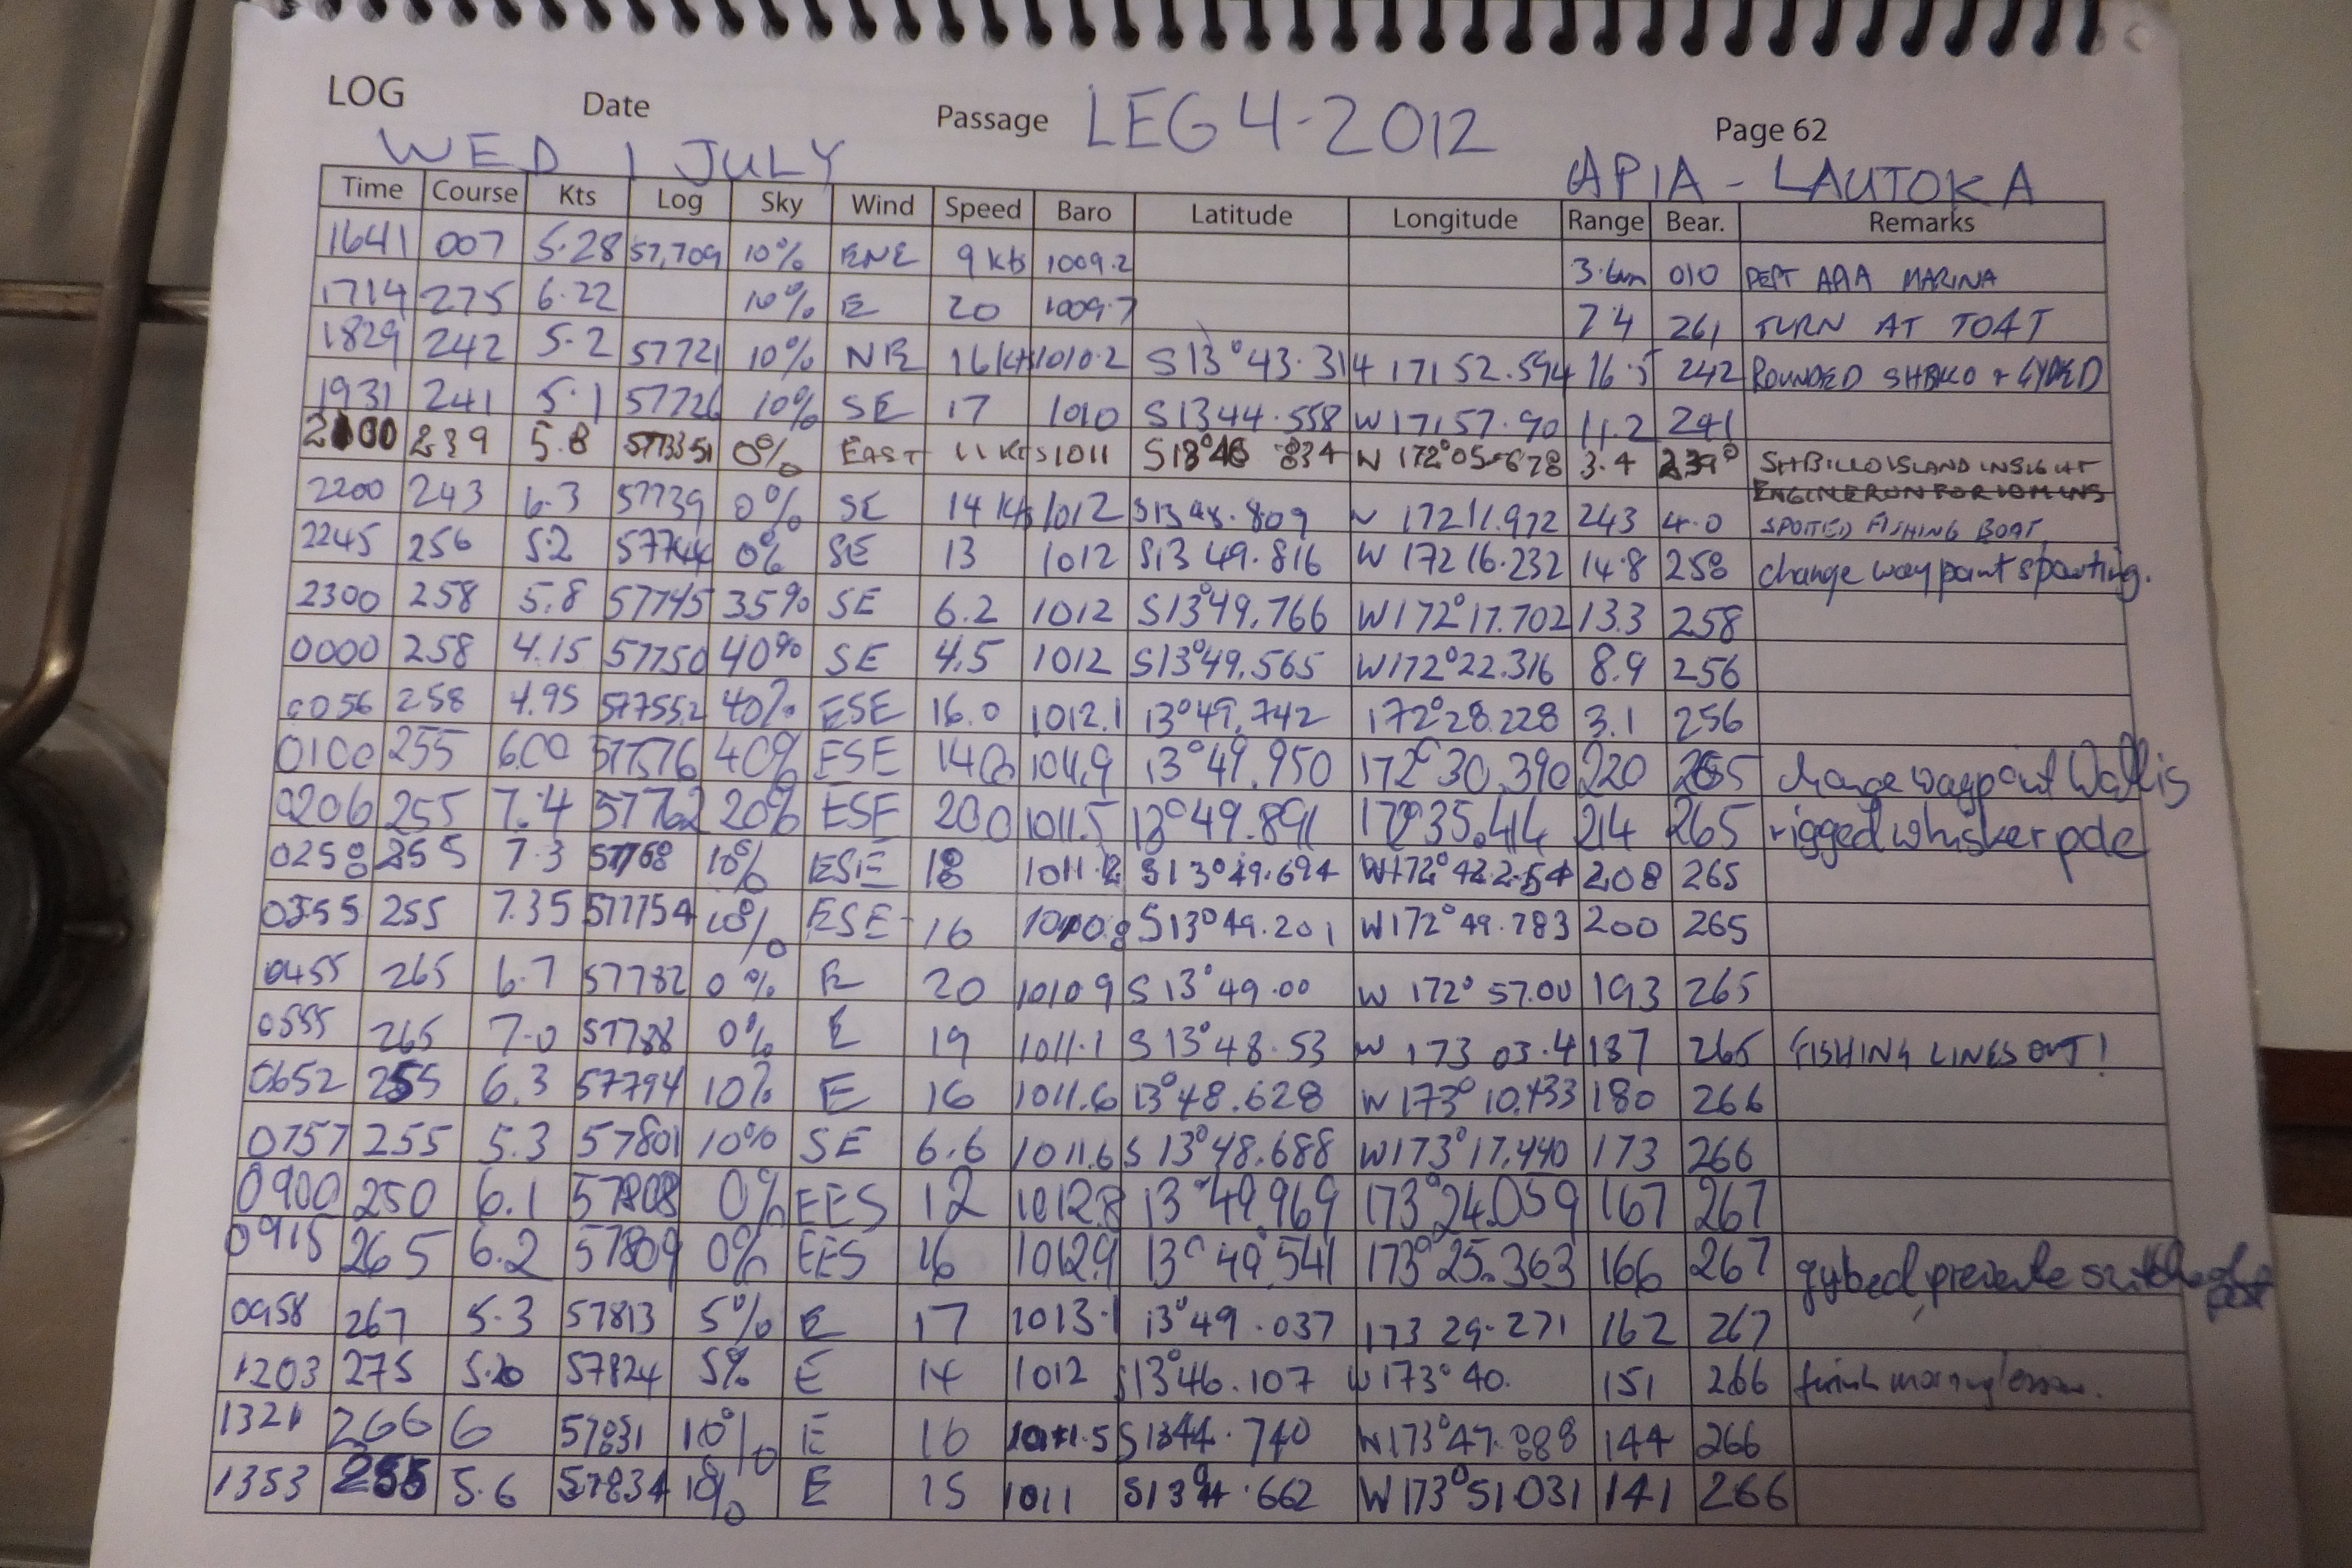 LOG Date Passage LEG 4-2012 Page 62
WED 1 JULY APIA - LAUTOKA
Time Course Kts Log Sky Wind Speed Baro Latitude Longitude Range Bear. Remarks
1641 007 5.28 57,709 10% ENE 9 kts 1009.2 010 DEPT APIA MARINA
1714 275 6.22 10% E 20 1009.7 7.4 261 TURN AT
1829 242 5.2 57721 10% NE 16 kts 1010.2 S 13°43.314 171 52.594 16.5 242 ROUNDED
1931 241 5.1 57726 10% SE 17 1010 S 13 44.558 W 171 57.90 11.2 241
239 5.8 0% EAST 11 KTS 1011 3.4 239° ISLAND IN SIGHT
2200 243 6.3 57739 0% SE 14 kts 1012 172 11.972 243 4.0 SPOTTED FISHING BOAT
2245 256 5.2 57744 0% SE 13 1012 S13 49.816 W 172 16.232 14.8 258 change way point
2300 258 5.8 57745 35% SE 6.2 1012 S13°49.766 W172°17.702 13.3 258
0000 258 4.15 57750 40% SE 4.5 1012 S13°49.565 W172°22.316 8.9 256
0056 258 4.95 577552 40% ESE 16.0 1012.1 13°49.742 172°28.228 3.1 256
0100 255 6.00 40% ESE 1011.9 13°49.950 172°30.390 220 265 change waypoint Wallis
0206 255 7.4 57762 20% ESE 1011.5 13°49.891 172°35.414 214 265 rigged whisker pole
0258 255 7.3 57768 10% ESE 18 S13°49.694 W172°42.254 208 265
0355 255 7.35 577754 10% ESE 16 S13°49.201 W172°49.783 200 265
0455 265 6.7 57782 0% E 20 1010 9 S 13°49.00 W 172° 57.00 193 265
0555 265 7.0 57788 0% E 19 1011.1 S 13°48.53 W 173 03.4 187 265 FISHING LINES OUT!
0652 255 6.3 57794 10% E 16 1011.6 13°48.628 W 173° 10.433 180 266
0757 255 5.3 57801 10% SE 6.6 1011.6 S 13°48.688 W173°17.440 173 266
0900 250 6.1 57808 0% EES 12 1012.8 13°49.969 173°24.059 167 267
0915 265 6.2 57809 0% EES 16 1012.9 13°49.541 173°25.363 166 267 gybed
0958 267 5.3 57813 5% E 17 1013.1 13°49.037 173 29.271 162 267
1203 275 5.20 57824 5% E 14 1012 S13°46.107 W173° 40. 151 266
1321 266 6 57831 10% E 16 S 1344.740 W173°47.888 144 266
1353 5.6 57834 10% E 15 1011 W173°51.031 141 266